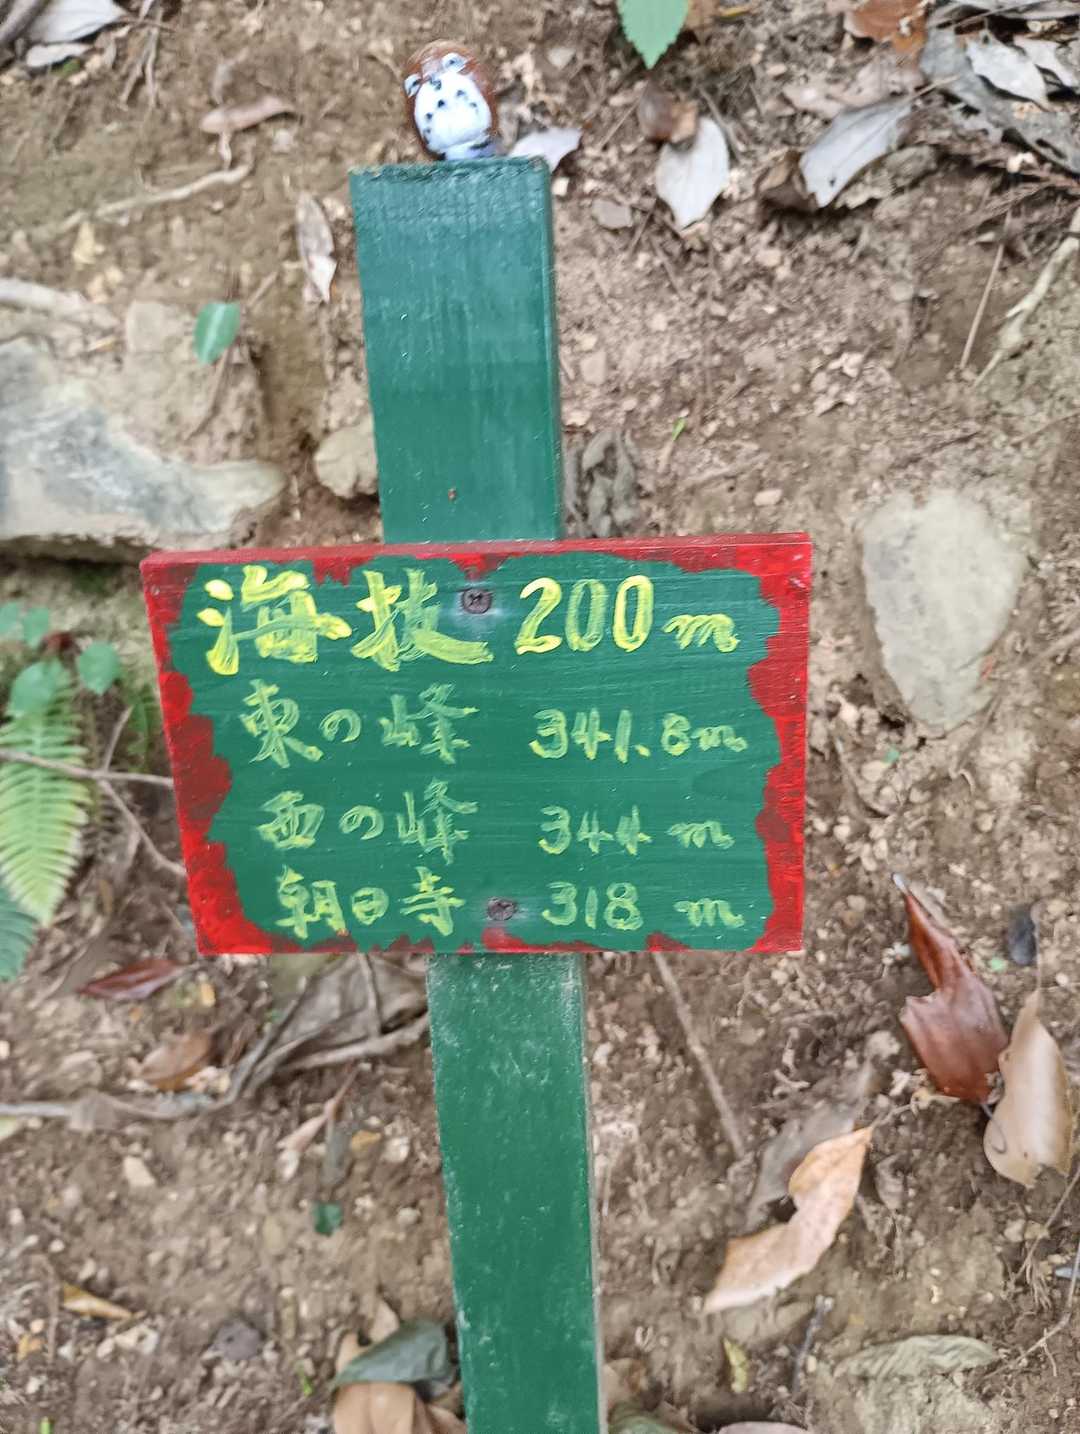 海抜 200m
東の峰 341.8m
西の峰 344m
朝日寺 318m